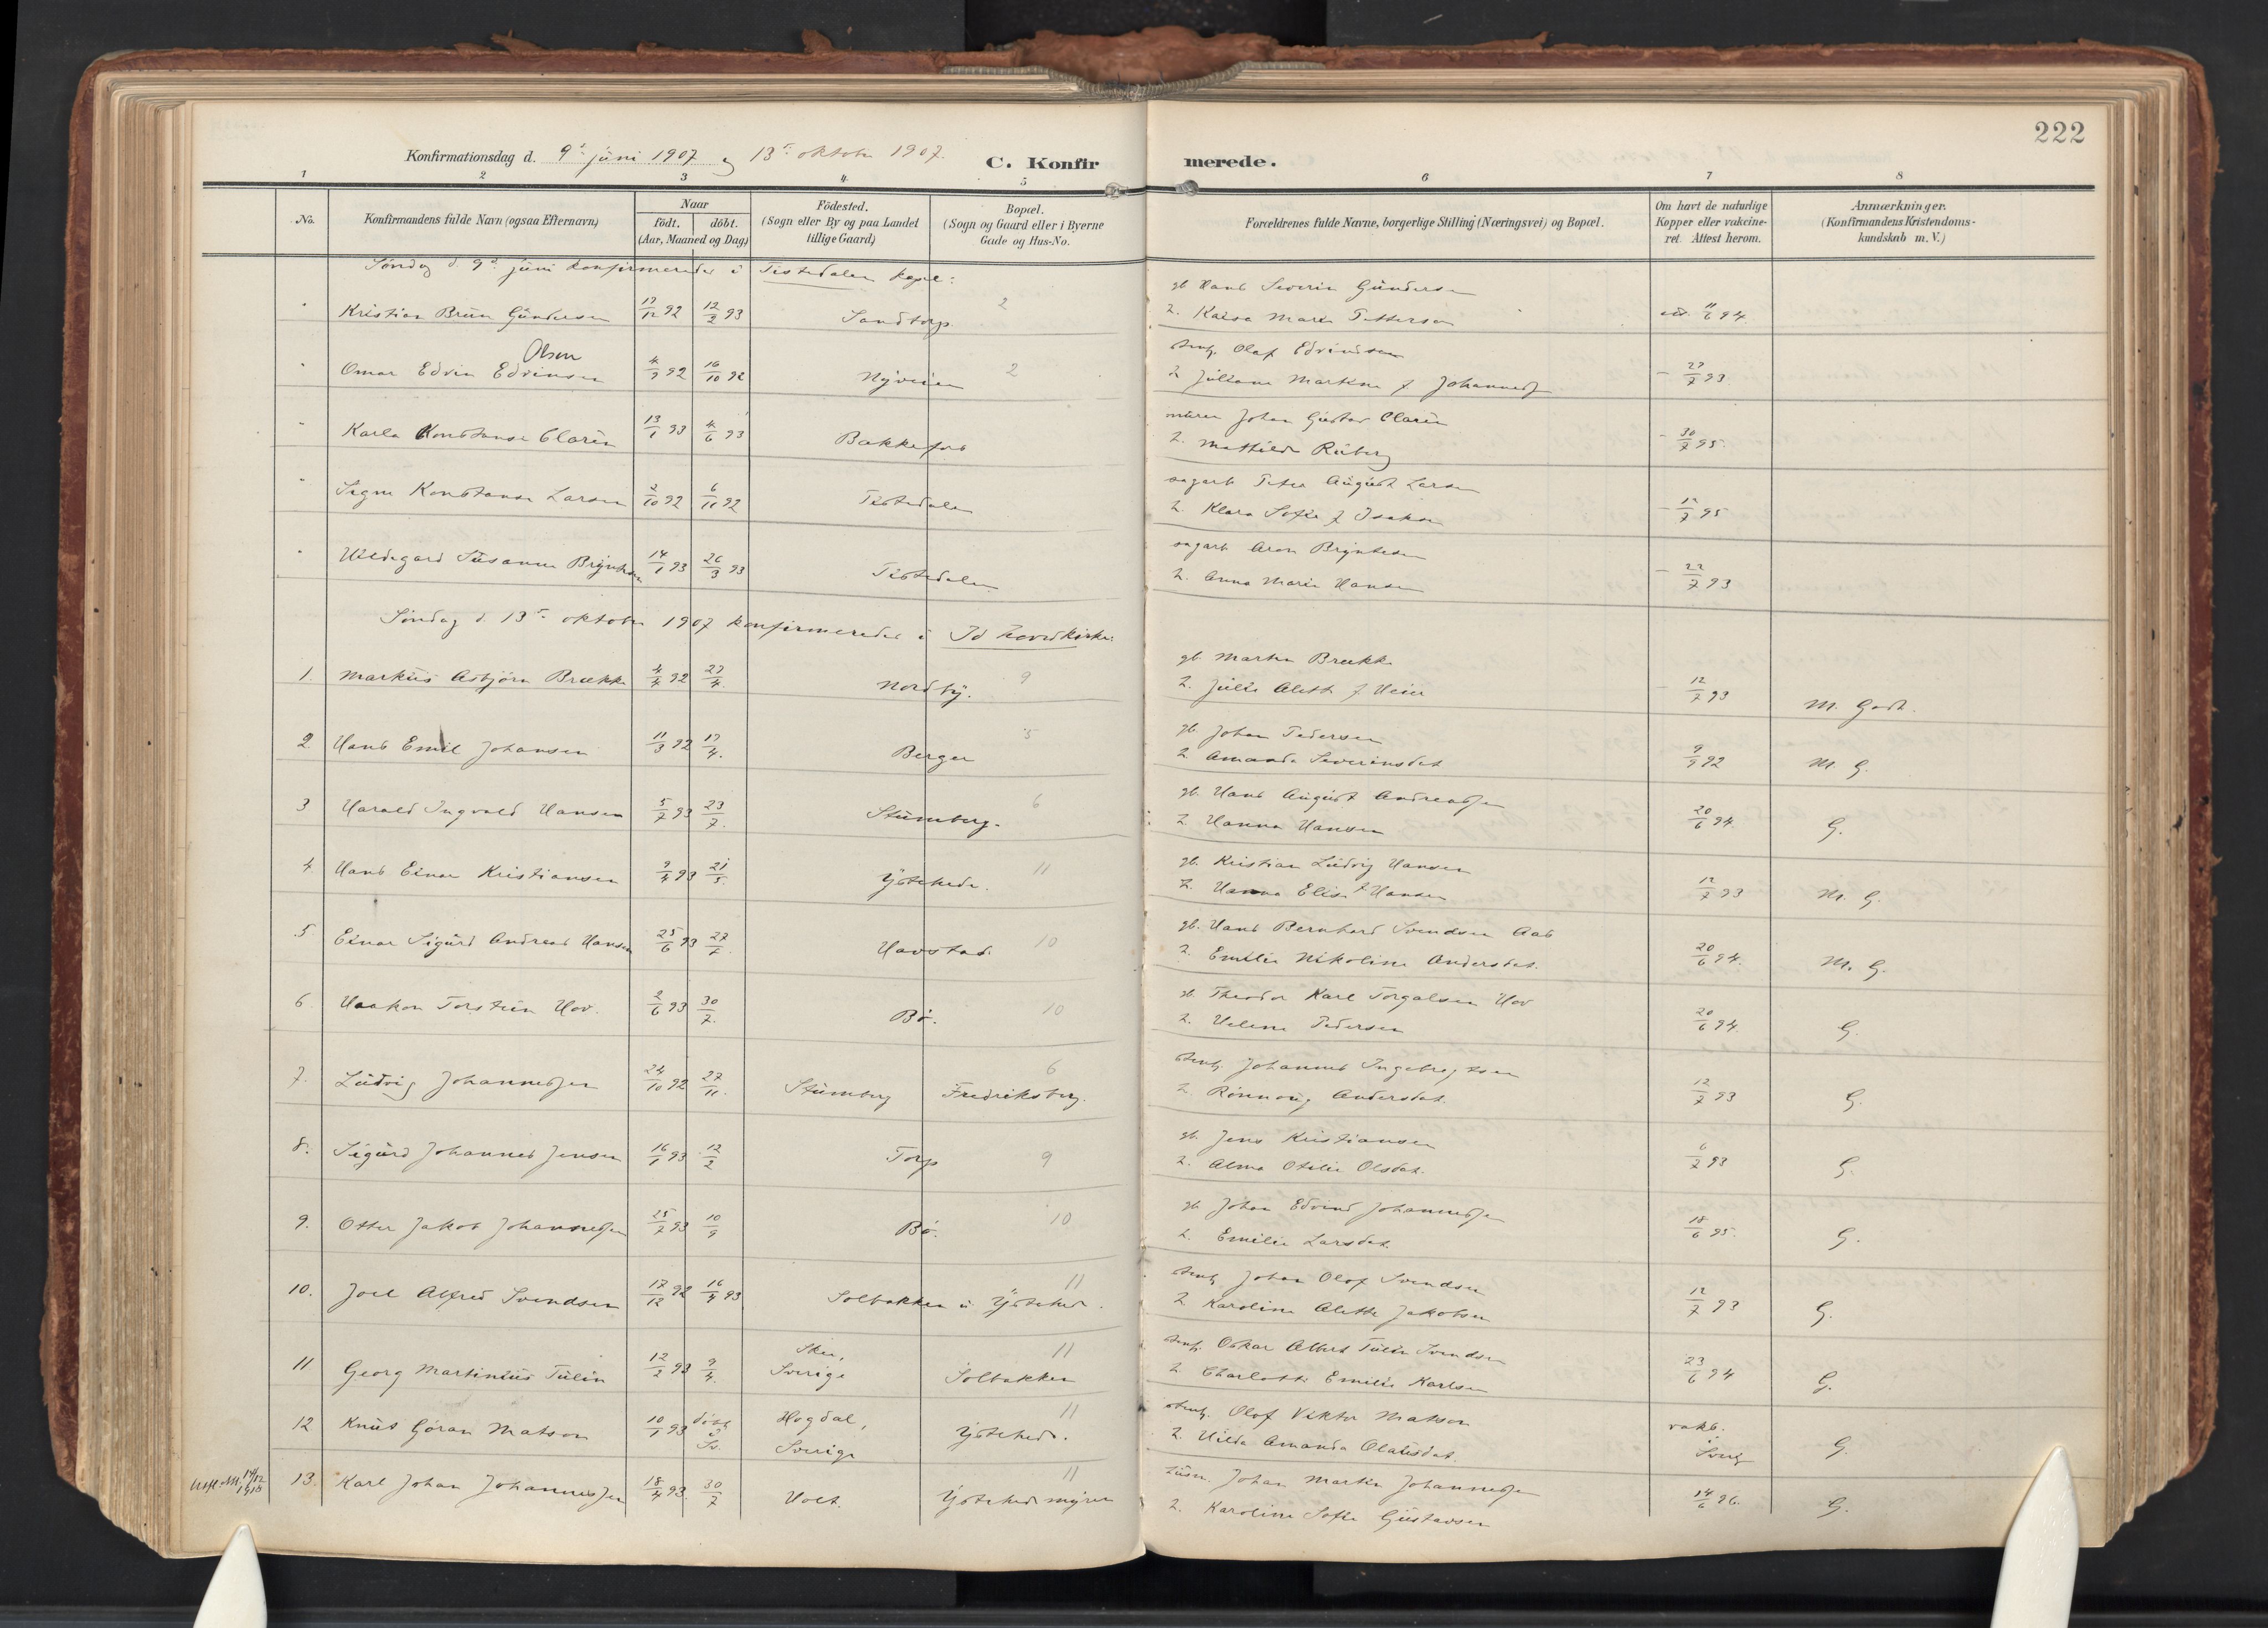 222
Konfirmationsdag d. 9de juni 1907 og 13de oktober 1907.
C. Konfirmerede.
1 2 3 4 5 6 7 8
No. Konfirmandens fulde Navn (ogsaa Efternavn) Naar født. døbt. (Aar, Maaned og Dag) Fødested. (Sogn eller By og paa Landet tillige Gaard) Bopæl. (Sogn og Gaard eller i Byerne Gade og Hus-No. Forældrenes fulde Navne, borgerlige Stilling (Næringsvei) og Bopæl. Om havt de naturlige Kopper eller vakcineret. Attest herom. Anmærkninger. (Konfirmandens Kristendomskundskab m. V.)
Søndag d. 9de juni konfirmeredes i Tistedalen kapel:
" Kristian Brün Gundersen 17/12 92 12/2 93 Sandtorp. 2 gb Hans Severin Gundersen
2. Kaisa Marie Pettersen 11/6 94.
" Omar Edvin Edvinsen Olsen 4/9 92 16/10 92 Nyveien 2 Olaf Edvindsen
2 Juliane Martine f Johannessen - 27/7 93.
" Karla Konstanse Clarin 13/1 93 4/6 93 Bakkefos murer Johan Gustav Clarin
2. Mathilde Ruberg - 30/7 95.
" Signe Konstanse Larsen 2/10 92 6/11 92 Tistedalen sagarb Peter August Larsen
2. Klara Sofie f Isaksen - 12/7 95
" Hildegard Susanne Bryntesen 14/1 93 26/3 93 Tistedalen sagarb Aron Bryntesen
2. Anna Marie Hansen - 22/7 93
Søndag d. 13de oktober 1907 konfirmeredes i Id hovedkirke:
1. Markus Asbjørn Brække 4/4 92 27/4. Nordby. 9 gb. Martin Brække
2. Julie Alette f Heier - 12/7 93 M. Godt.
2 Hans Emil Johansen 11/3 92 17/4. Berger 5 gb Johan Pedersen
2 Amanda Severinsdat 9/9 92 M. G.
3 Harald Ingvald Hansen 5/7 93 23/7. Stumberg. 6 gb. Hans August Andreassen
2 Hanna Hansen 20/6 94. G.
4 Hans Einar Kristiansen 9/4 93 21/5. Ystehede. 11 gb. Kristian Ludvig Hansen
2. Hanna Elise f Hansen 12/7 93 M. G.
5 Einar Sigurd Andreas Hansen 25/6 93 27/7. Havstad. 10 gb. Hans Bernhard Svendsen Aas
2. Emilie Nikoline Andersdat. 20/6 94. M. G.
6 Haakon Torstein Hov. 2/6 93 30/7. Bø. 10 gb. Theodor Karl Torgalsen Hov
2. Helene Pedersen 20/6 94. G.
7. Ludvig Johannessen 24/10 92 27/11. Stumberg Fredriksberg. 6 Johannes Ingebregtsen
2. Rønnoug Andersdat. 12/7 93 G.
8. Sigurd Johannes Jensen 16/1 93 12/2 Torp 9 gb. Jens Kristiansen
2. Alma Otilie Olsdat. 6/7 93 G.
9. Otter Jakob Johannessen 25/7 93 10/9 Bø. 10 gb Johan Edvind Johannessen
2. Emilie Larsdat. 18/6 95. G.
10. Joel Alfred Svendsen 17/12 92 16/4 93 Solbakken u Ystehede. 11 Johan Olof Svendsen
2 Karoline Alette Jakobsen 12/7 93 G.
11 Georg Martinius Tulin 12/2 93 9/4. Skee, Sverige Solbakken 11 Oskar Albert Tulin Svendsen
2 Charlotte Emilie Karlsen 23/6 94 G.
12 Knut Göran Matson 10/1 93 døbt i Sv. Hogdal, Sverige Ystehede. 11 Olof Viktor Matson
2. Hilda Amanda Olausdat. vakc. i Sverig G.
Utfl. att. 14/12 1918 13. Karl Johan Johannessen 18/4 93. 30/7 Holt. Ystehedemyren 11 Johan Martin Johannessen
2. Karoline Sofie Gustavsen 14/6 96. G.